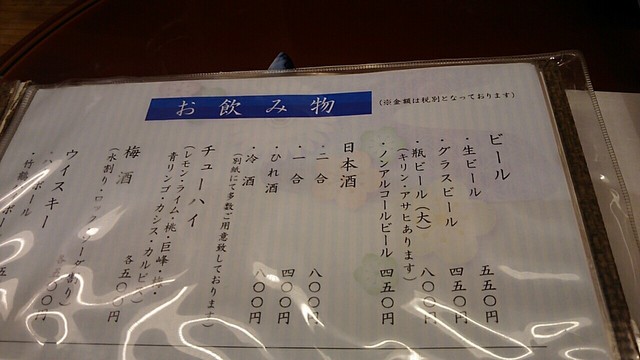 お飲み物
(※金額は税別となっております)
ビール
・生ビール 五五〇円
・グラスビール 四五〇円
・瓶ビール(大) 八〇〇円
(キリン・アサヒあります)
・ノンアルコールビール 四五〇円
日本酒
・二合 八〇〇円
・一合 四〇〇円
・ひれ酒 八〇〇円
・冷酒
(別紙にて多数ご用意致しております)
チューハイ
(レモン・ライム・桃・巨峰・
青リンゴ・カシス・カルピス) 各五〇〇円
梅酒
(水割り・ロック・ソーダあり) 各五〇〇円
ウイスキー
・ハイボール
・竹鶴